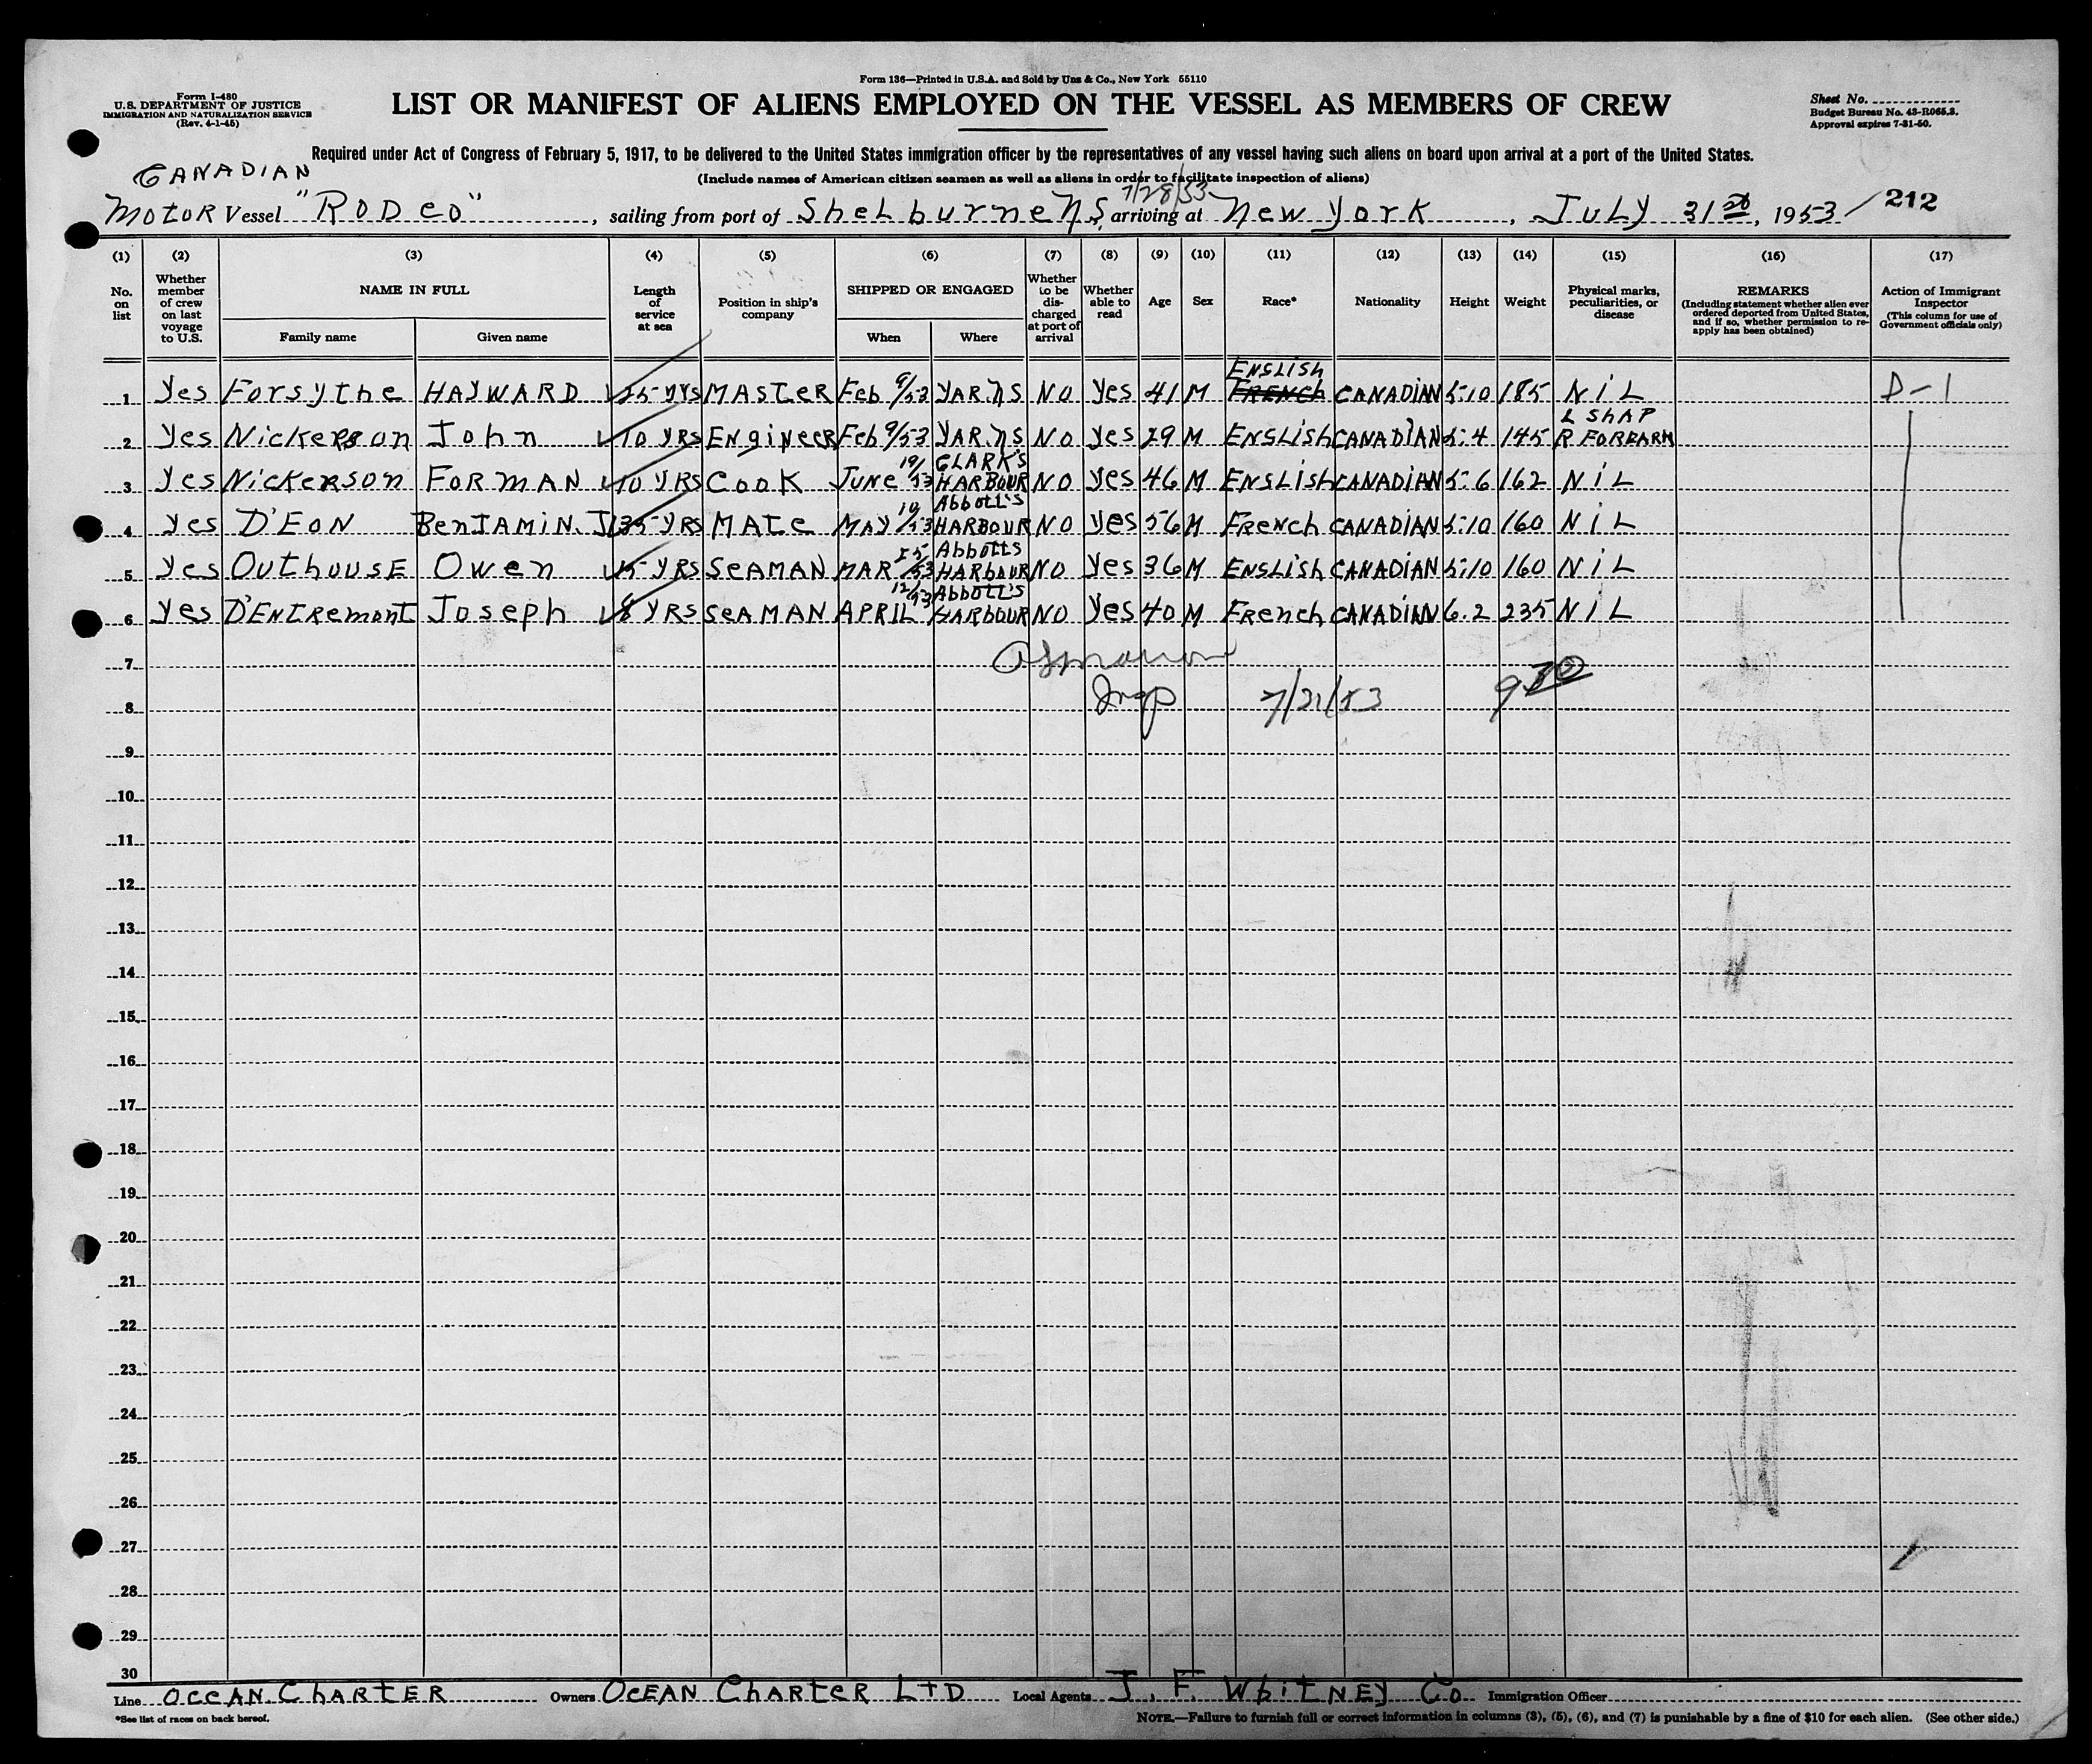 Form 136—Printed in U.S.A. and Sold by Unz & Co., New York 55110
Form I-480
U.S. DEPARTMENT OF JUSTICE
IMMIGRATION AND NATURALIZATION SERVICE
(Rev. 4-1-45)
LIST OR MANIFEST OF ALIENS EMPLOYED ON THE VESSEL AS MEMBERS OF CREW
Sheet No.
Budget Bureau No. 43-R065.3.
Approval expires 7-31-50.
Required under Act of Congress of February 5, 1917, to be delivered to the United States immigration officer by the representatives of any vessel having such aliens on board upon arrival at a port of the United States.
(Include names of American citizen seamen as well as aliens in order to facilitate inspection of aliens)
CANADIAN
7/28/53
Motor Vessel "RODEO", sailing from port of Shelburne N.S. arriving at New York, JULY 31st, 1953 / 212
(1) (2) (3) (4) (5) (6) (7) (8) (9) (10) (11) (12) (13) (14) (15) (16) (17)
No. on list
Whether member of crew on last voyage to U.S.
NAME IN FULL
Family name
Given name
Length of service at sea
Position in ship's company
SHIPPED OR ENGAGED
When
Where
Whether to be discharged at port of arrival
Whether able to read
Age
Sex
Race*
Nationality
Height
Weight
Physical marks, peculiarities, or disease
REMARKS
(Including statement whether alien ever ordered deported from United States, and if so, whether permission to reapply has been obtained)
Action of Immigrant Inspector
(This column for use of Government officials only)
1 Yes Forsythe HAYWARD 25 YRS MASTER Feb 9/53 YAR. NS NO Yes 41 M FRENCH ENGLISH CANADIAN 5:10 185 NIL D-1
2 Yes Nickerson John 10 YRS Engineer Feb 9/53 YAR. NS NO Yes 29 M ENGLISH CANADIAN 5:4 145 L SHAP R FOREARM
3 Yes Nickerson FORMAN 10 YRS COOK JUNE 19/53 CLARK'S HARBOUR NO Yes 46 M ENGLISH CANADIAN 5:6 162 NIL
4 Yes D'EON BENJAMIN. J 35 YRS MATE MAY 19/53 Abbott's HARBOUR NO Yes 56 M FRENCH CANADIAN 5:10 160 NIL
5 Yes OUTHOUSE Owen 15 YRS SEAMAN MAR 25/53 Abbotts HARBOUR NO Yes 36 M ENGLISH CANADIAN 5:10 160 NIL
6 Yes D'ENTREMONT Joseph 8 YRS SEAMAN APRIL 12/53 Abbott's HARBOUR NO Yes 40 M FRENCH CANADIAN 6.2 235 NIL
7
8 Insp 7/31/53 9 30
9
10
11
12
13
14
15
16
17
18
19
20
21
22
23
24
25
26
27
28
29
30
Line OCEAN CHARTER Owners OCEAN CHARTER LTD Local Agents J. F. WHITNEY Co Immigration Officer
*See list of races on back hereof.
NOTE.—Failure to furnish full or correct information in columns (3), (5), (6), and (7) is punishable by a fine of $10 for each alien. (See other side.)